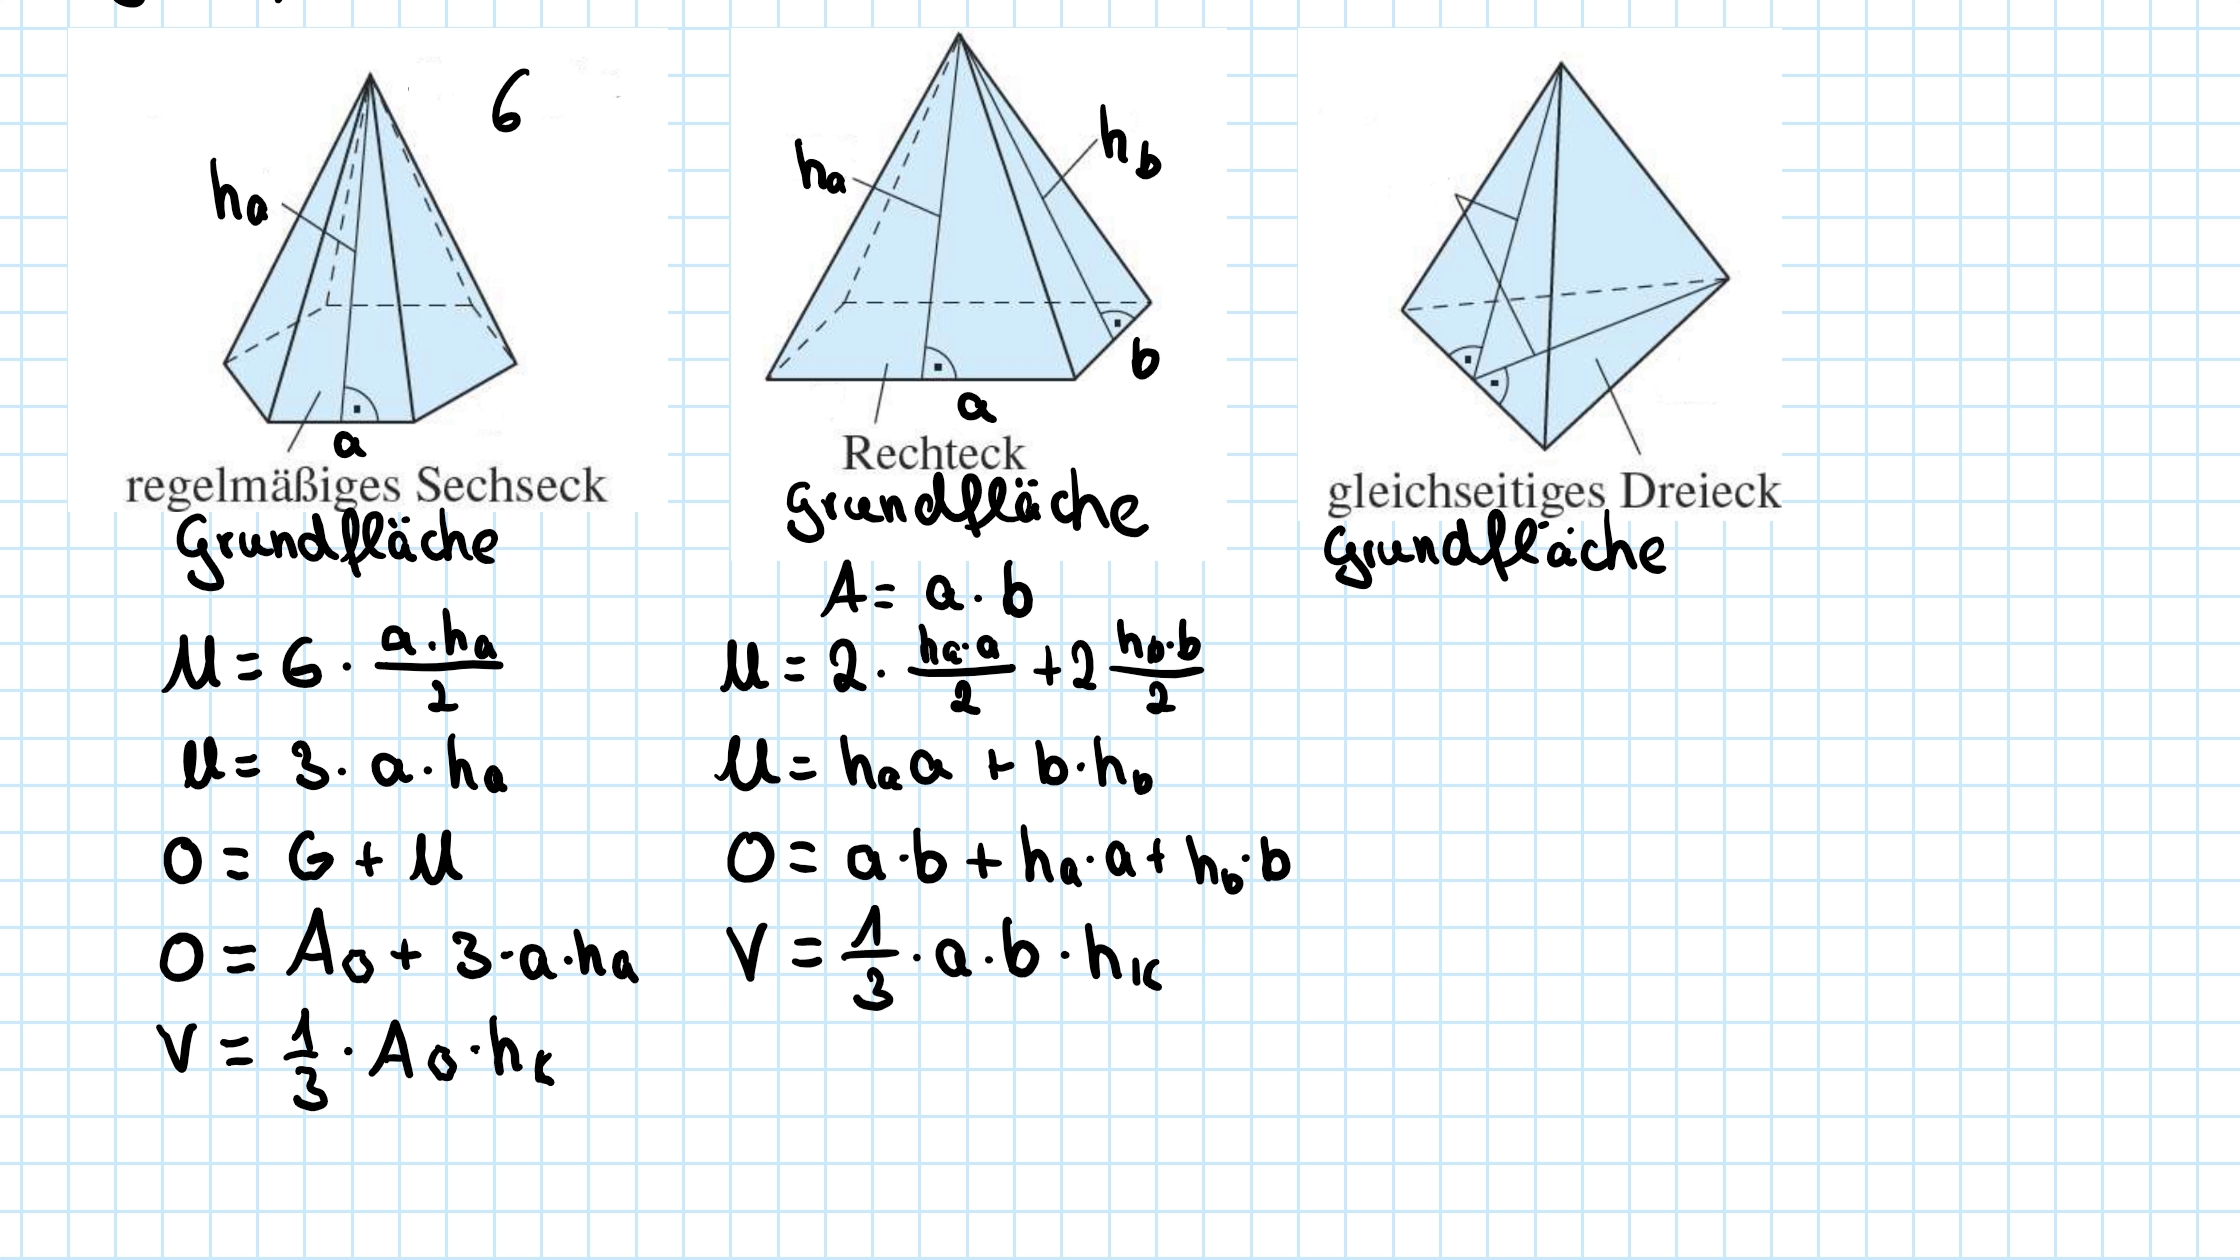 6
hₐ
a
regelmäßiges Sechseck
Grundfläche
M = 6 · (a·hₐ)/2
M = 3 · a · hₐ
O = G + M
O = A₀ + 3·a·hₐ
V = 1/3 · A₀ · hₖ
hₐ
h_b
b
a
Rechteck
Grundfläche
A = a · b
M = 2 · (hₐ·a)/2 + 2 (h_b·b)/2
M = hₐ a + b·h_b
O = a·b + hₐ·a + h_b·b
V = 1/3 · a · b · hₖ
gleichseitiges Dreieck
Grundfläche